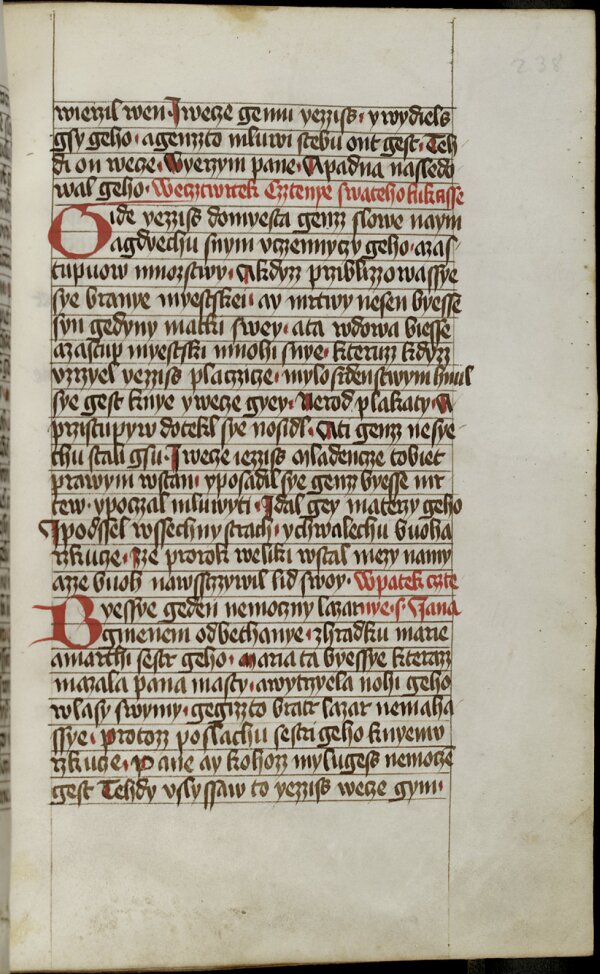 238
wierzil wen · I wecze gemu yezziss · y wydiels
gsy geho · a genzzto mluwi stebu ont gest · Teh
di on wecze · Wyerzym pane · A padna nasledo
wal geho · Wecztwrtek Cztenye swateho lukasse
Gide yezziss domyesta genz slowe naym
a gdyechu snym vczennyczy geho · a zas
tupuow mnozstwy · A kdyz prziblizzowassye
sye branye myestskei · ay mrtwy nesen byesse
syn gedyny matki swey · a ta wdowa biesse
a zastup myestski mnohi snye · kteruz kdyzz
vzrzyel yezziss placzicze · mylosrdenstwym hnul
sye gest knye y wecze gyey · Nerod plakaty · A
przistupyw dotekl sye nosidl · A ti genz nesye
chu stali gsu · I wecze iezziss mladencze tobiet
prawym wstan · y posadil sye genz byesse mr
tew · y poczal mluwyti · I dal gey materzy geho
I podssel wssechny strach · y chwalechu buoha
rzkucze · Zze prorok weliki wstal mezy namy
a zze buoh nawsstzywil lid swoy · W patek czte
Byessye geden nemoczny lazar nye · s · Jana
gmenem odbethanye · zhradku marie
a marthi sestr geho · Maria ta byessye kterazz
mazala pana masty · a wytrzyela nohi geho
wlasy swymy · gegizzto bratr lazar nemaha
ssye · Protozz poslachu sestri geho knyemu
rzkucze · Pane ay kohozz mylugess nemoczen
gest Tehdy vslyssaw to yezziss wecze gym ·